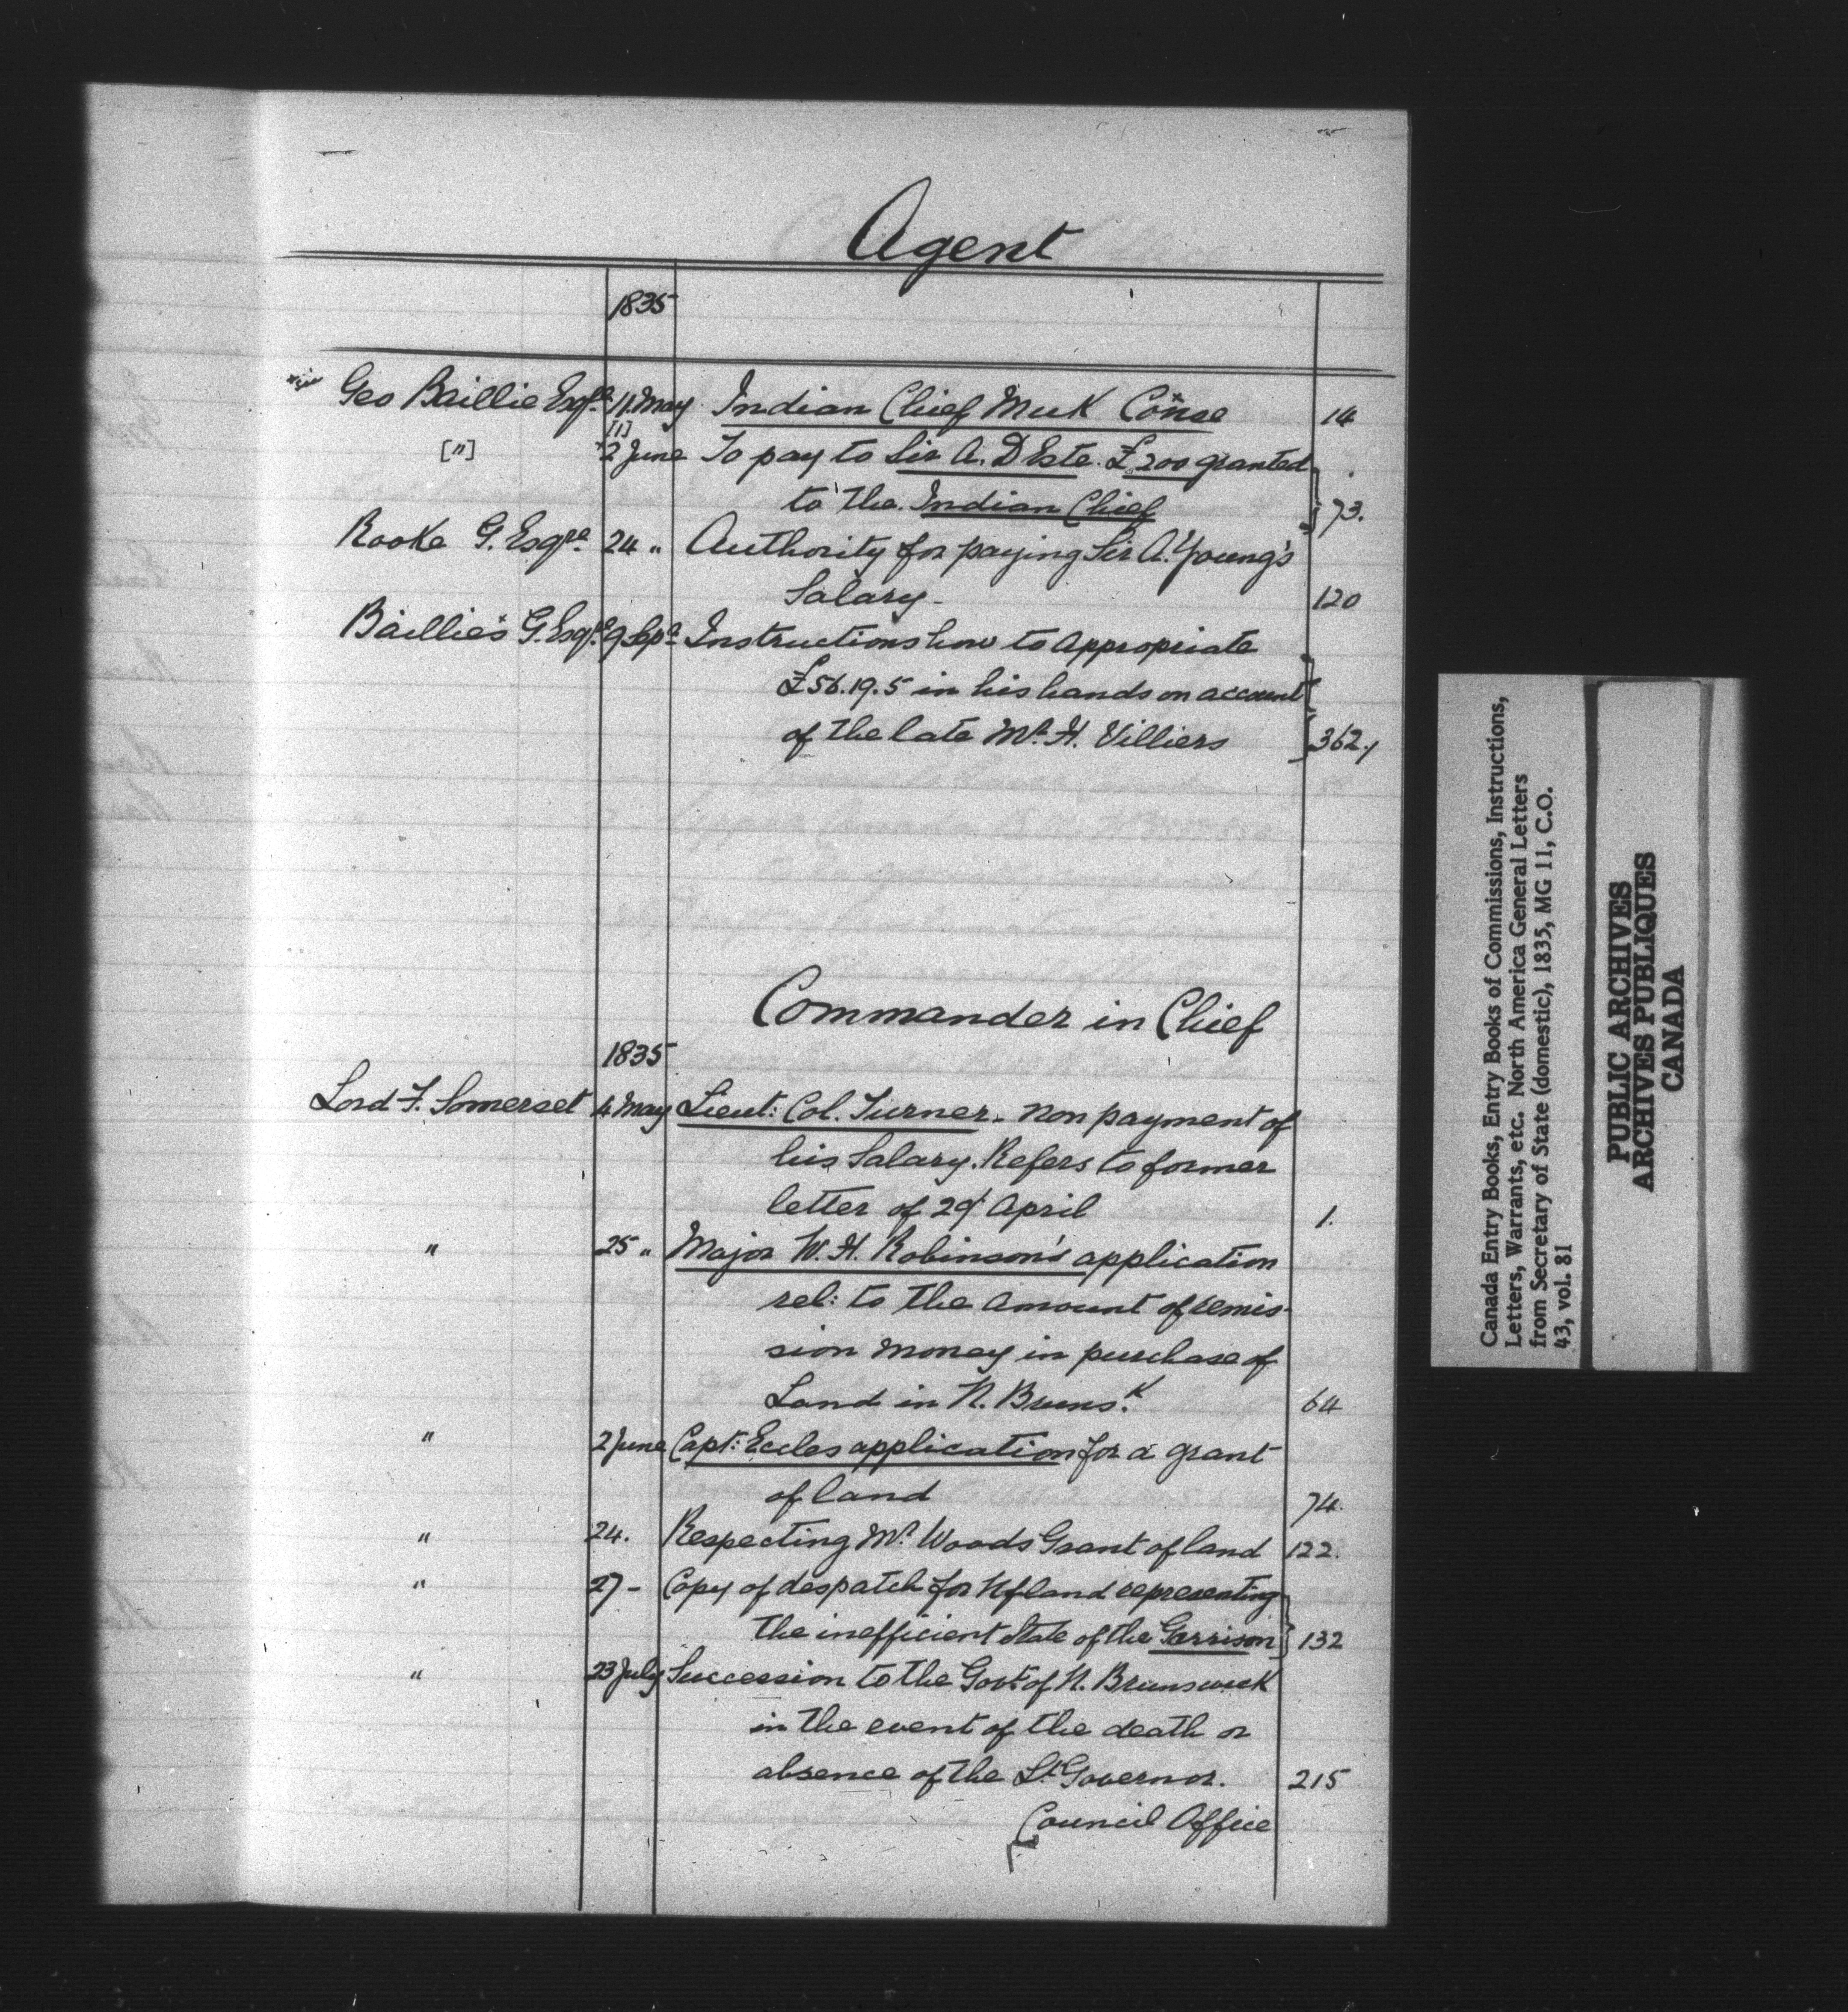 Agent
1835
Geo Baillie Esqre 11 May Indian Chief Muk Conse 14
["] [1] 2 June To pay to Sir A. D Este. £200 granted
to the Indian Chief 73.
Rooke G. Esqre 24 " Authority for paying Sir A. Young's
Salary - 120
Baillie's G. Esqre 9 Sepr Instructions how to appropriate
£56.19.5 in his hands on account
of the late Mr H. Villiers 362.
Commander in Chief
1835
Lord F. Somerset 4 May Lieut: Col. Turner - non payment of
his Salary. Refers to former
letter of 29 April 1.
" 25 " Major W. H. Robinson's application
rel: to the amount of remis-
sion money in purchase of
Land in N. Brunsk 64
" 2 June Capt: Eccles application for a grant
of land 74.
" 24. Respecting Mr Woods Grant of land 122.
" 27 - Copy of despatch for Nfland representing
the inefficient state of the Garrison 132
" 23 July Succession to the Govt of N. Brunswick
in the event of the death or
absence of the Lt Governor. 215
Council Office
Canada Entry Books, Entry Books of Commissions, Instructions,
Letters, Warrants, etc. North America General Letters
from Secretary of State (domestic), 1835, MG 11, C.O.
43, vol. 81
PUBLIC ARCHIVES
ARCHIVES PUBLIQUES
CANADA